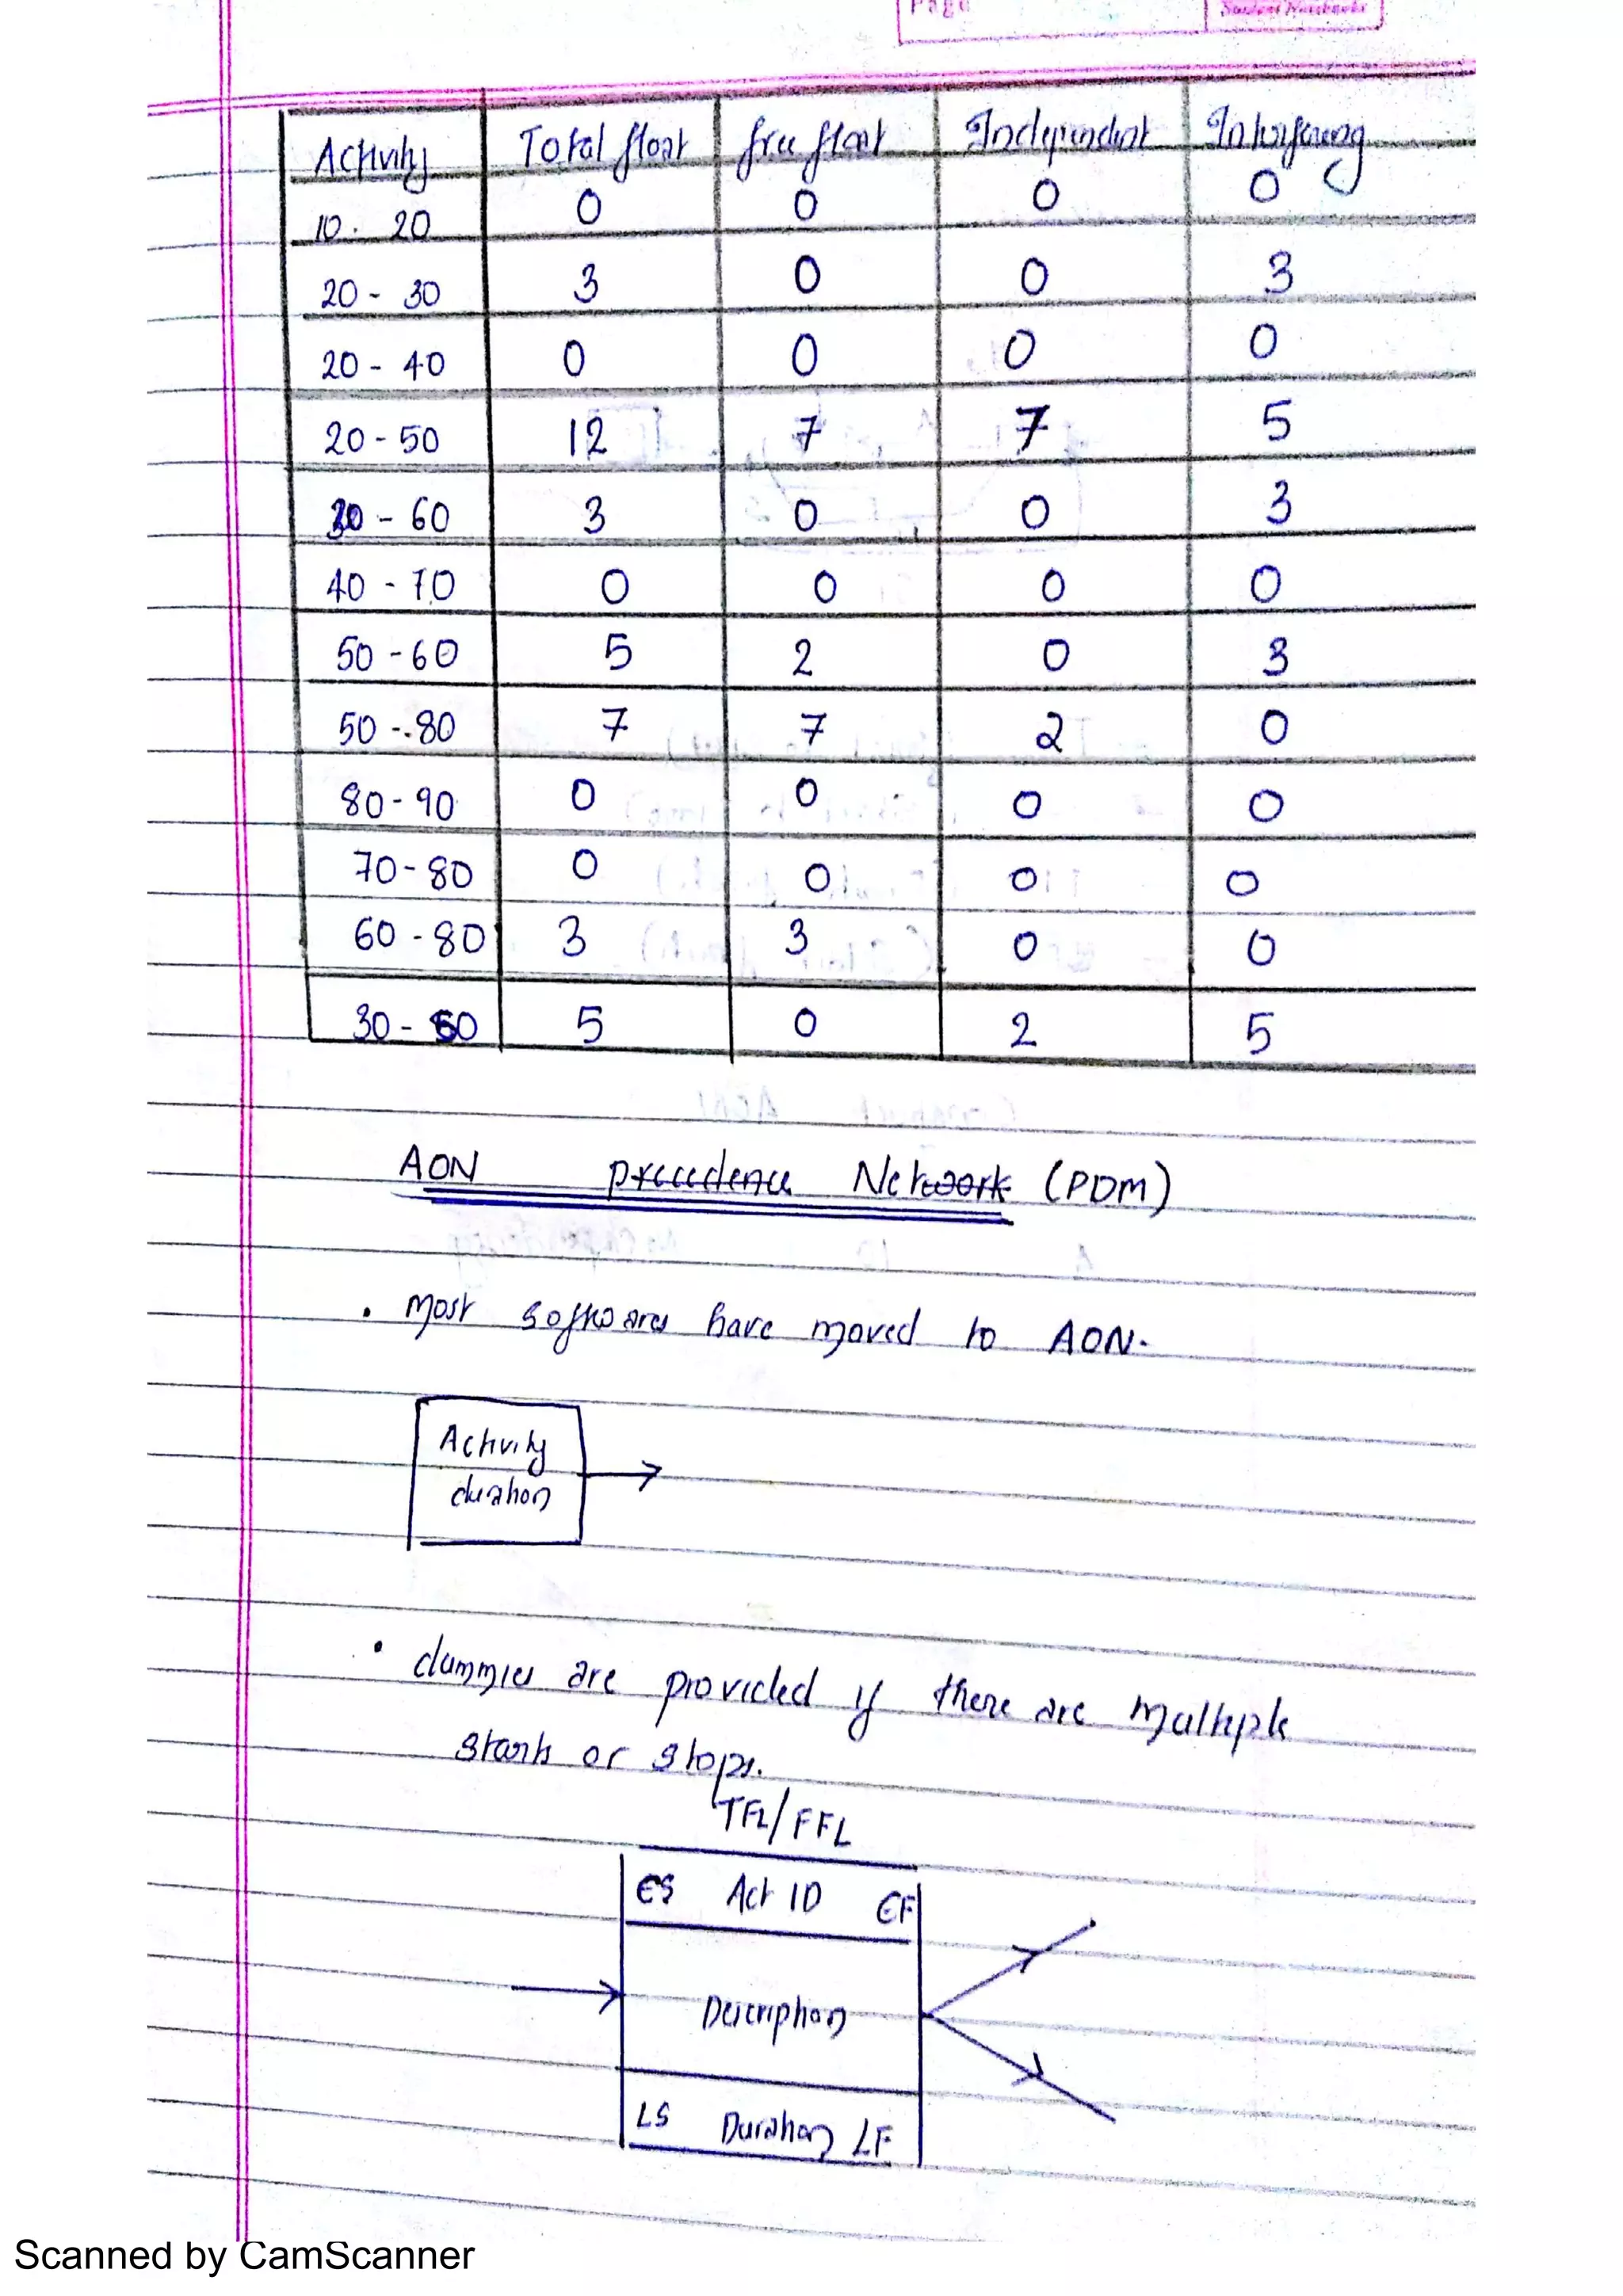 Page
Student Notebooks
Activity Total float free float Independent Interfering
10 - 20 0 0 0 0
20 - 30 3 0 0 3
20 - 40 0 0 0 0
20 - 50 12 7 7 5
30 - 60 3 0 0 3
40 - 70 0 0 0 0
50 - 60 5 2 0 3
50 - 80 7 7 2 0
80 - 90 0 0 0 0
70 - 80 0 0 0 0
60 - 80 3 3 0 0
30 - 50 5 0 2 5
AON precedence Network (PDM)
• Most softwares have moved to AON.
Activity
duration
• dummies are provided if there are multiple
starts or stops.
TFL/FFL
ES Act ID EF
Description
LS Duration LF
Scanned by CamScanner